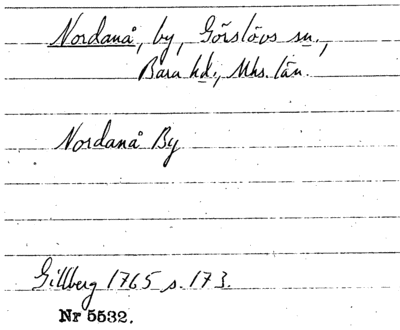 Nordanå, by, Görslövs sn.,
Bara hd., Mhs. län.
Nordanå By
Gillberg 1765 s. 173.
Nr 5532.